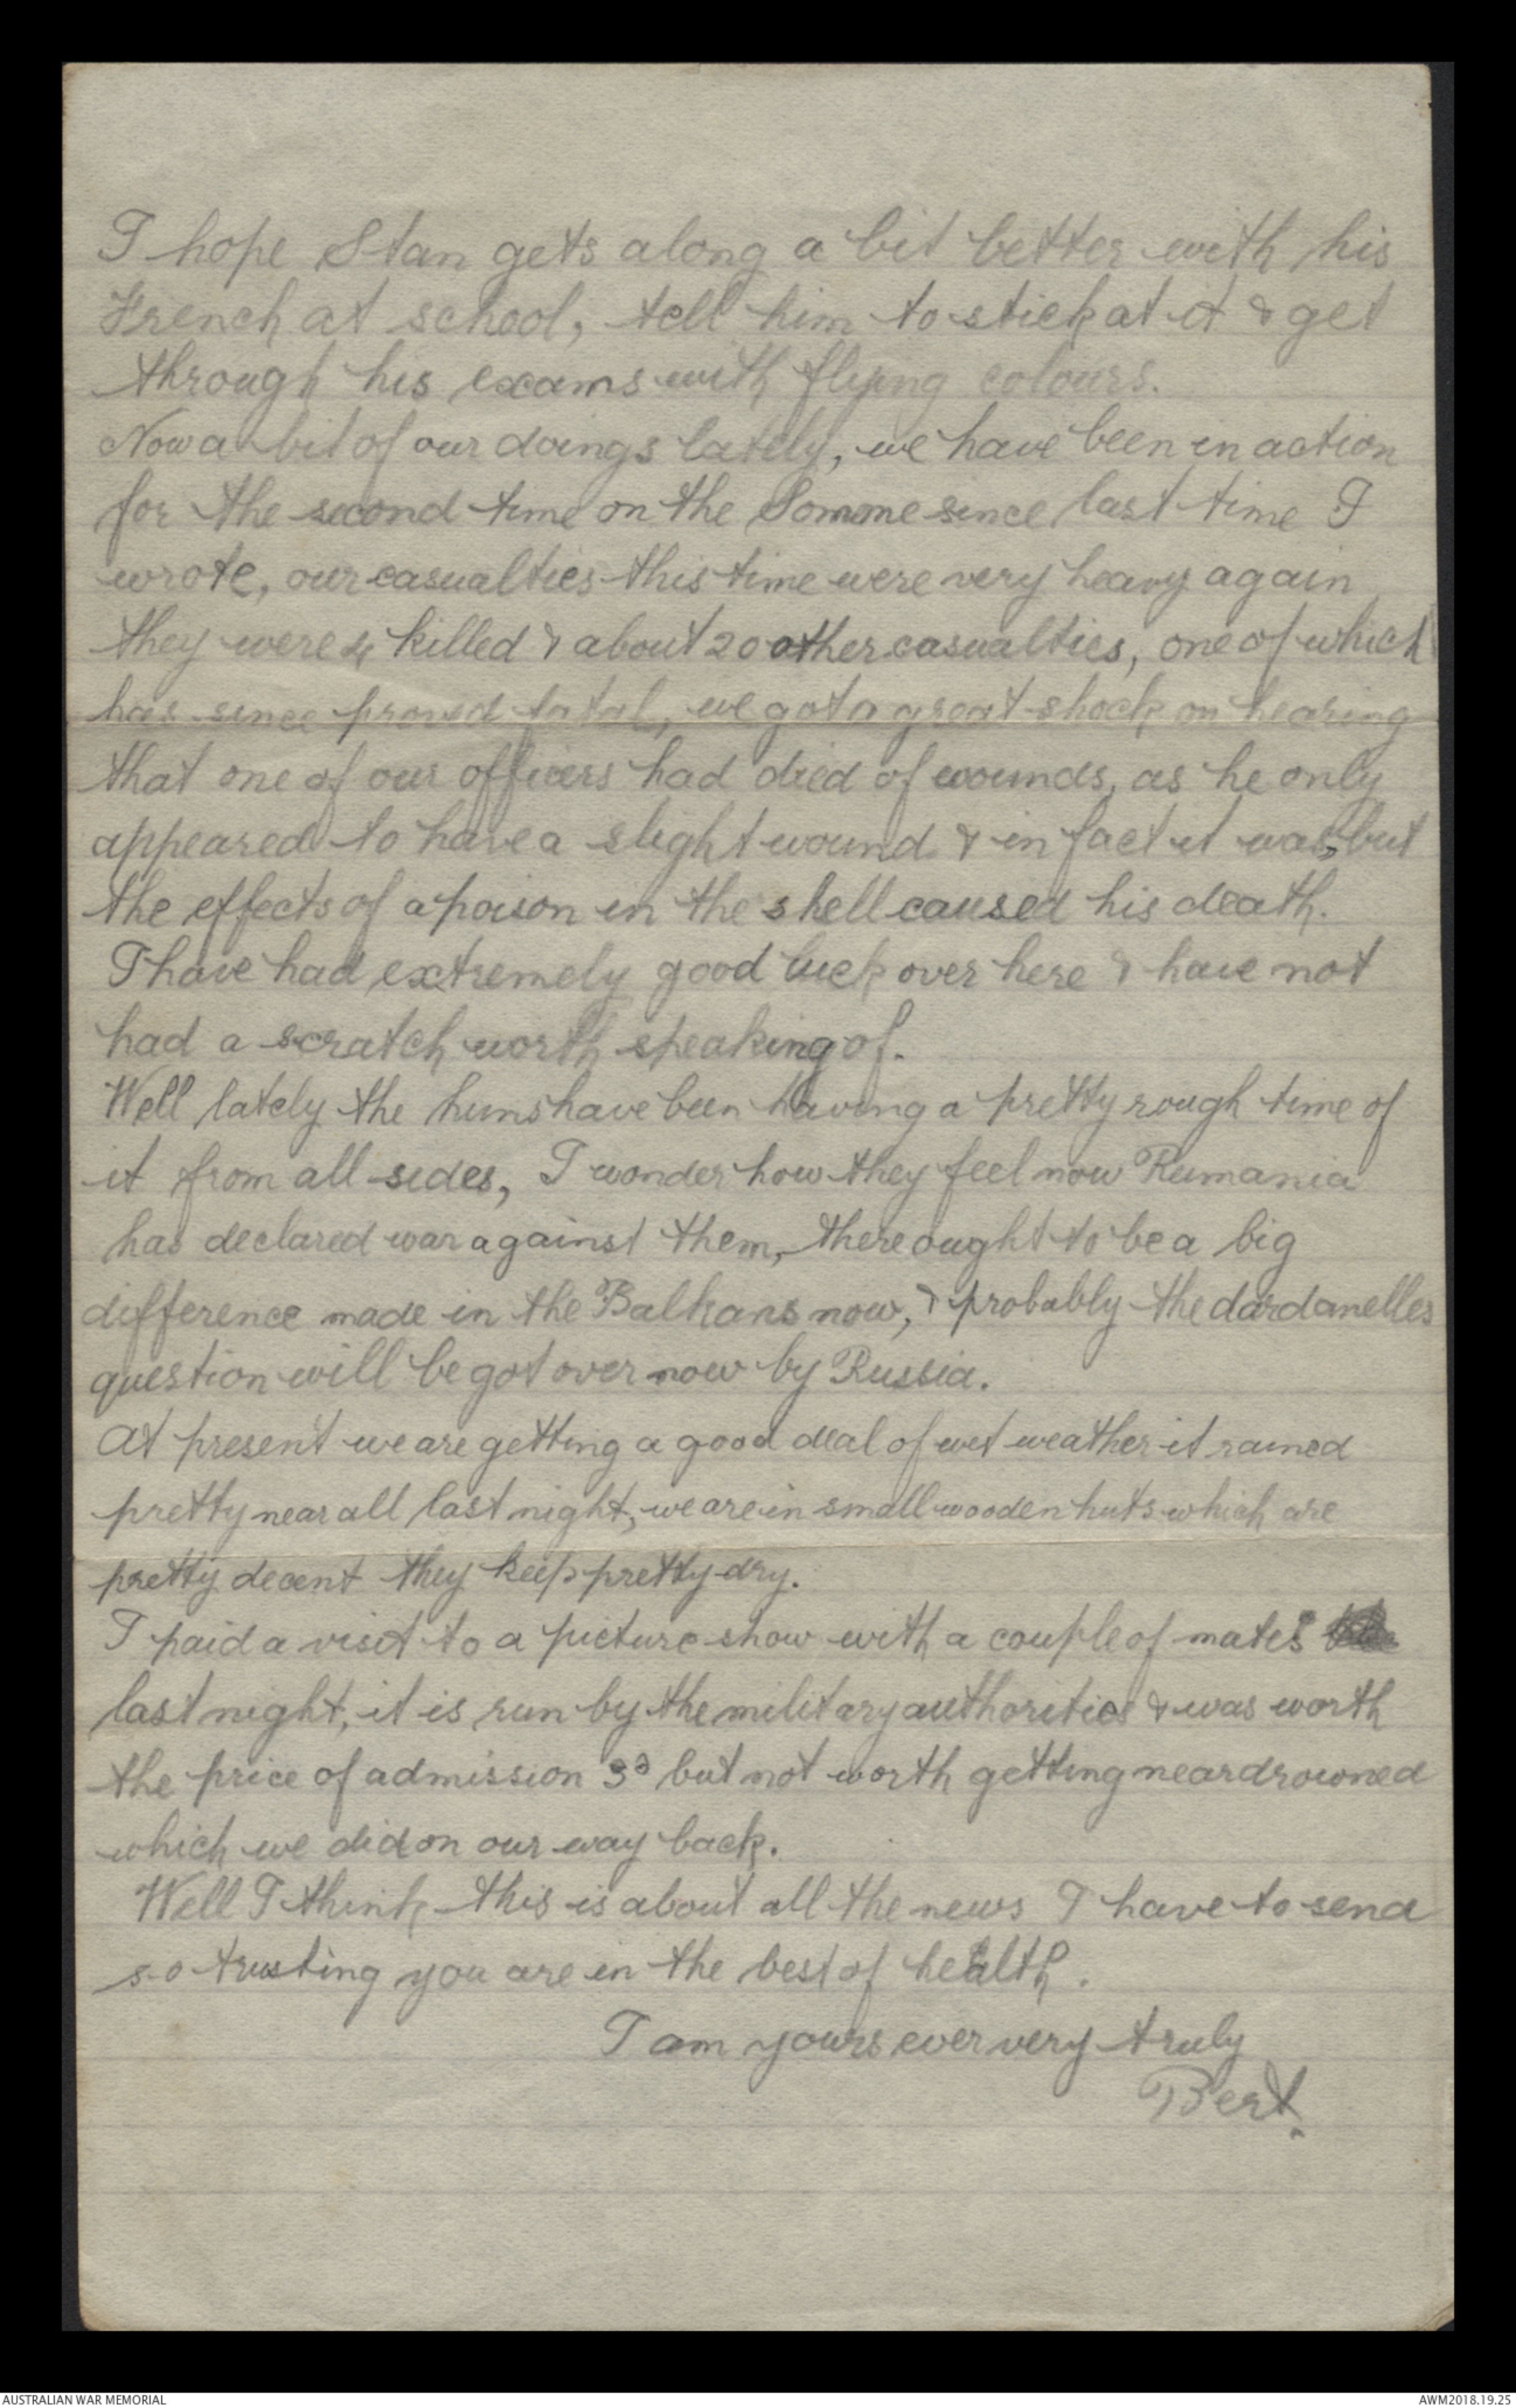 I hope Stan gets along a bit better with his
French at school, tell him to stick at it & get
through his exams with flying colours.
Now a bit of our doings lately, we have been in action
for the second time on the Somme since last time I
wrote, our casualties this time were very heavy again
they were 4 killed & about 20 other casualties, one of which
has since proved fatal, we got a great shock on hearing
that one of our officers had died of wounds, as he only
appeared to have a slight wound & in fact it was, but
the effects of a poison in the shell caused his death.
I have had extremely good luck over here & have not
had a scratch worth speaking of.
Well lately the huns have been having a pretty rough time of
it from all sides, I wonder how they feel now Rumania
has declared war against them, there ought to be a big
difference made in the Balkans now, & probably the dardanelles
question will be got over now by Russia.
At present we are getting a good deal of wet weather it rained
pretty near all last night, we are in small wooden huts which are
pretty decent they keep pretty dry.
I paid a visit to a picture show with a couple of mates
last night, it is run by the military authorities & was worth
the price of admission 3d but not worth getting near drowned
which we did on our way back.
Well I think this is about all the news I have to send
so trusting you are in the best of health.
I am yours ever very truly
Bert.
AUSTRALIAN WAR MEMORIAL
AWM2018.19.25